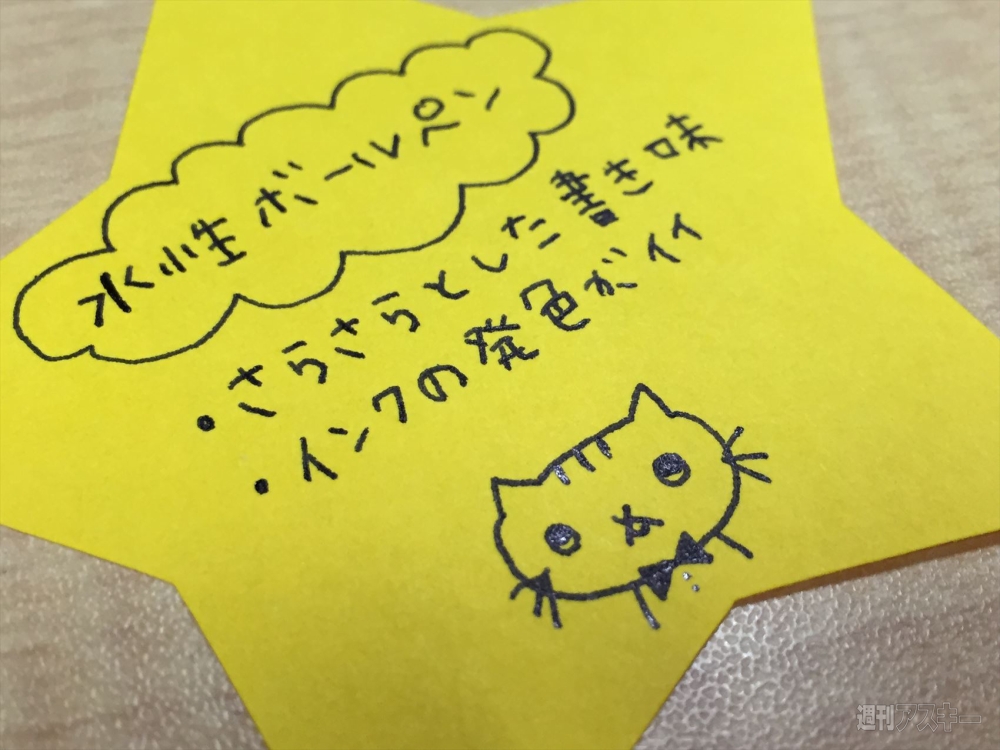 水性ボールペン
・さらさらとした書き味
・インクの発色がイイ
週刊アスキー